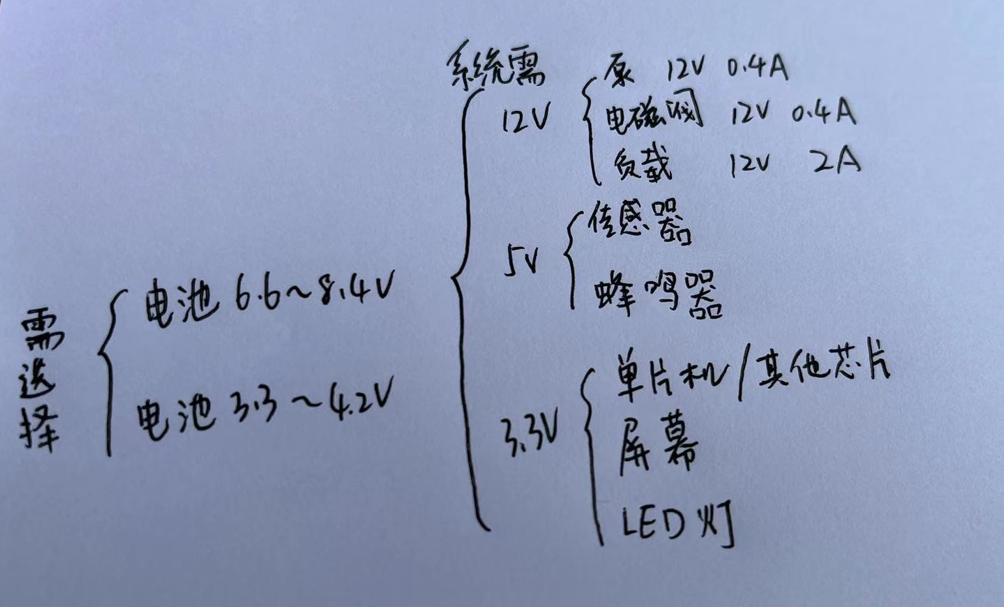 需选择
电池 6.6~8.4V
电池 3.3~4.2V
系统需
12V
泵 12V 0.4A
电磁阀 12V 0.4A
负载 12V 2A
5V
传感器
蜂鸣器
3.3V
单片机/其他芯片
屏幕
LED灯